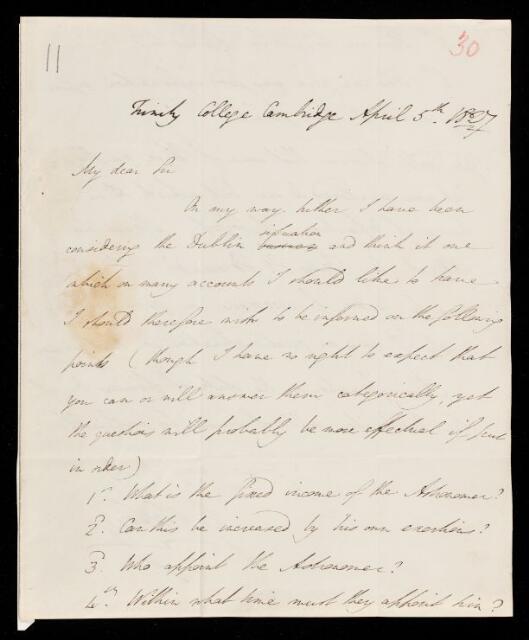 11
30
Trinity College Cambridge April 5th. 1827
My dear Sir
On my way hither I have been
considering the Dublin situation and think it one
which on many accounts I should like to have
I should therefore wish to be informed on the following
points (though I have no right to expect that
you can or will answer them categorically, yet
the questions will probably be more effectual if put
in order)
1st. What is the fixed income of the Astronomer?
2d. Can this be increased by his own exertions?
3d. Who appoint the Astronomer?
4th. Within what time must they appoint him?